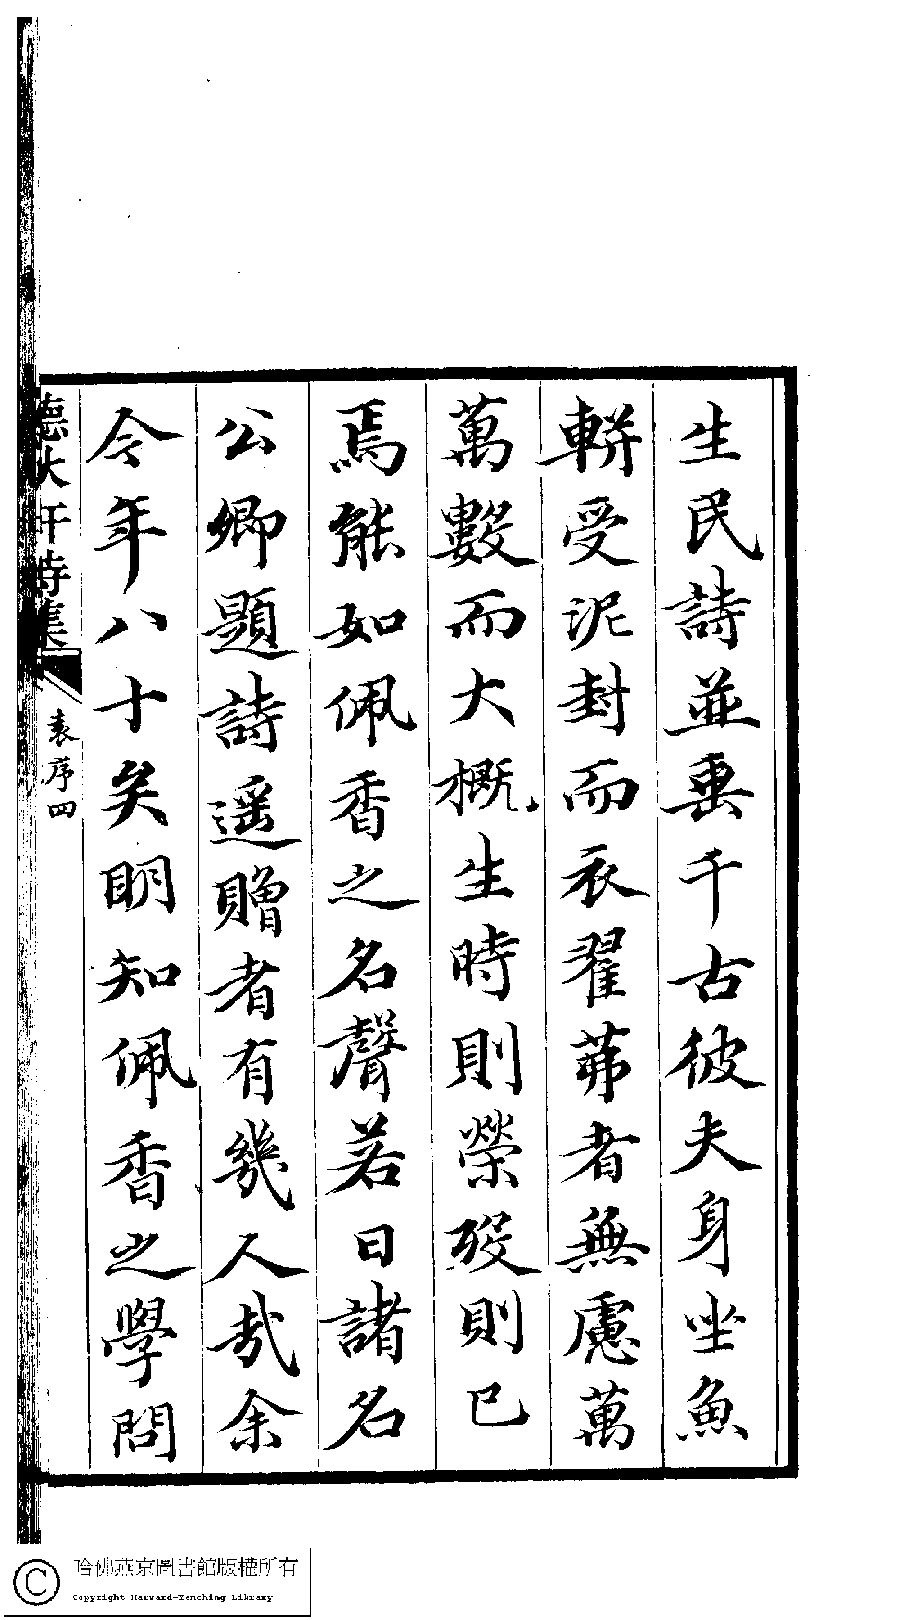 生民詩並垂千古彼夫身坐魚
軿受泥封而衣翟茀者無慮萬
萬數而大概生時則榮歿則已
焉能如佩香之名聲若日諸名
公卿題詩遥贈者有幾人哉余
今年八十矣明知佩香之學問
詩集
袁序四
哈佛燕京圖書館版權所有
Copyright Harvard-Yenching Library